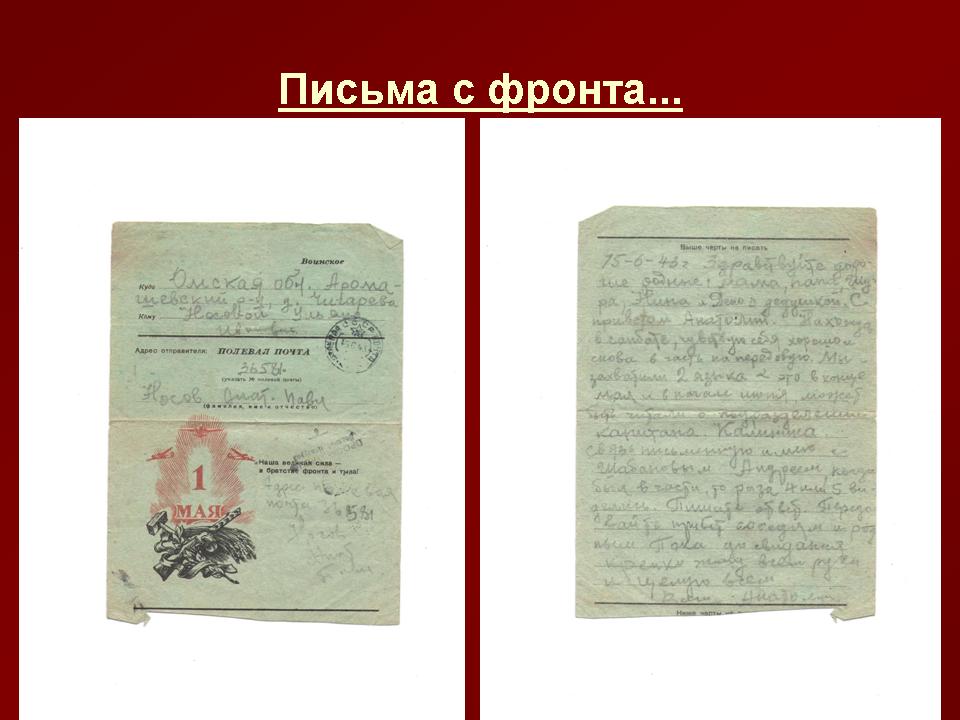 Письма с фронта...
Воинское
Куда Омская обл. Арома-
шевский р-н, д. Чигарева
Кому Носовой Ульяне
Адрес отправителя: ПОЛЕВАЯ ПОЧТА
36581.
(указать № полевой почты)
Носов Анат. Павл
(фамилия, имя и отчество)
1
МАЯ
Наша великая сила —
в братстве фронта и тыла!
Адрес полевая
почта 36581
Носов
Выше черты не писать
15-6-43 г. Здравствуйте доро-
гие родные: мама, папа, Шу-
ра, Нина и Гена и дедушка. С
приветом Анатолий. Нахожусь
в санбате, чувствую себя хорошо
снова в часть на передовую. Мы
захватили 2 языка это в конце
мая и в начале июня, может
быть читали о подразделении
капитана Калинина.
связь письменную имею с
Шабановым Андреем, когда
был в части, то раза 4 или 5 ви-
делись. Пишите ответ. Передо-
вайте привет соседям и род
ным Пока до свидания
крепко жму всем руки
и целую всем
Ваш Анатолий
Ниже черты не